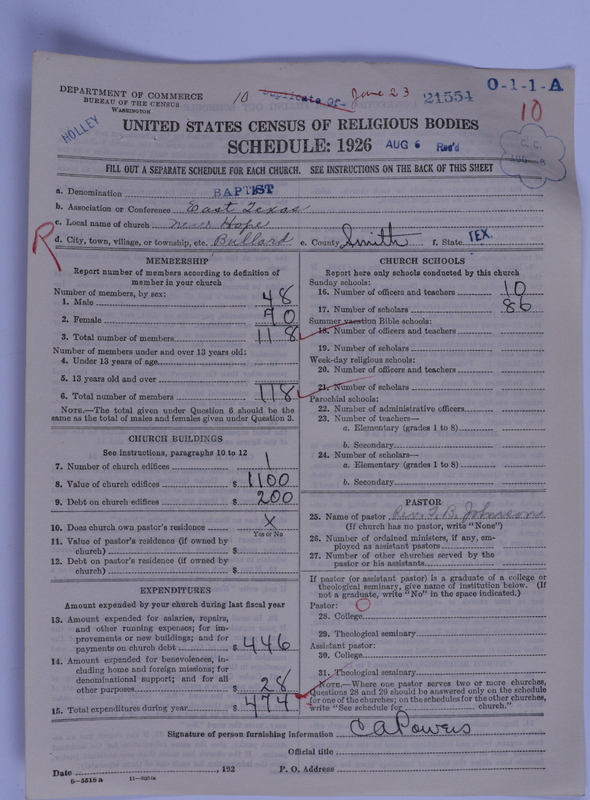 DEPARTMENT OF COMMERCE
BUREAU OF THE CENSUS
WASHINGTON
10 Duplicate or June 23 21554 O-1-1-A
10
HOLLEY
UNITED STATES CENSUS OF RELIGIOUS BODIES
SCHEDULE: 1926 AUG 6 Rec'd
C.C.
AUG
FILL OUT A SEPARATE SCHEDULE FOR EACH CHURCH. SEE INSTRUCTIONS ON THE BACK OF THIS SHEET
a. Denomination BAPTIST
b. Association or Conference East Texas
c. Local name of church New Hope
R d. City, town, village, or township, etc. Bullard e. County Smith f. State TEX.
MEMBERSHIP
Report number of members according to definition of
member in your church
Number of members, by sex:
1. Male 48
2. Female 70
3. Total number of members 118
Number of members under and over 13 years old:
4. Under 13 years of age
5. 13 years old and over
6. Total number of members 118
NOTE.—The total given under Question 6 should be the
same as the total of males and females given under Question 3.
CHURCH BUILDINGS
See instructions, paragraphs 10 to 12
7. Number of church edifices 1
8. Value of church edifices $ 1100
9. Debt on church edifices $ 200
10. Does church own pastor's residence X
Yes or No
11. Value of pastor's residence (if owned by
church) $
12. Debt on pastor's residence (if owned by
church) $
EXPENDITURES
Amount expended by your church during last fiscal year
13. Amount expended for salaries, repairs,
and other running expenses; for im-
provements or new buildings; and for
payments on church debt $ 446
14. Amount expended for benevolences, in-
cluding home and foreign missions; for
denominational support; and for all
other purposes $ 28
15. Total expenditures during year $ 474
CHURCH SCHOOLS
Report here only schools conducted by this church
Sunday schools:
16. Number of officers and teachers 10
17. Number of scholars 86
Summer vacation Bible schools:
18. Number of officers and teachers
19. Number of scholars
Week-day religious schools:
20. Number of officers and teachers
21. Number of scholars
Parochial schools:
22. Number of administrative officers
23. Number of teachers—
a. Elementary (grades 1 to 8)
b. Secondary
24. Number of scholars—
a. Elementary (grades 1 to 8)
b. Secondary
PASTOR
25. Name of pastor Rev. J. B. Johnson
(If church has no pastor, write "None")
26. Number of ordained ministers, if any, em-
ployed as assistant pastors
27. Number of other churches served by the
pastor or his assistants
If pastor (or assistant pastor) is a graduate of a college or
theological seminary, give name of institution below. (If
not a graduate, write "No" in the space indicated.)
Pastor: O
28. College
29. Theological seminary
Assistant pastor:
30. College
31. Theological seminary
NOTE.—Where one pastor serves two or more churches,
Questions 28 and 29 should be answered only on the schedule
for one of the churches; on the schedules for the other churches,
write "See schedule for church."
Signature of person furnishing information C A Powers
Official title
Date , 192 P. O. Address
6-5518a